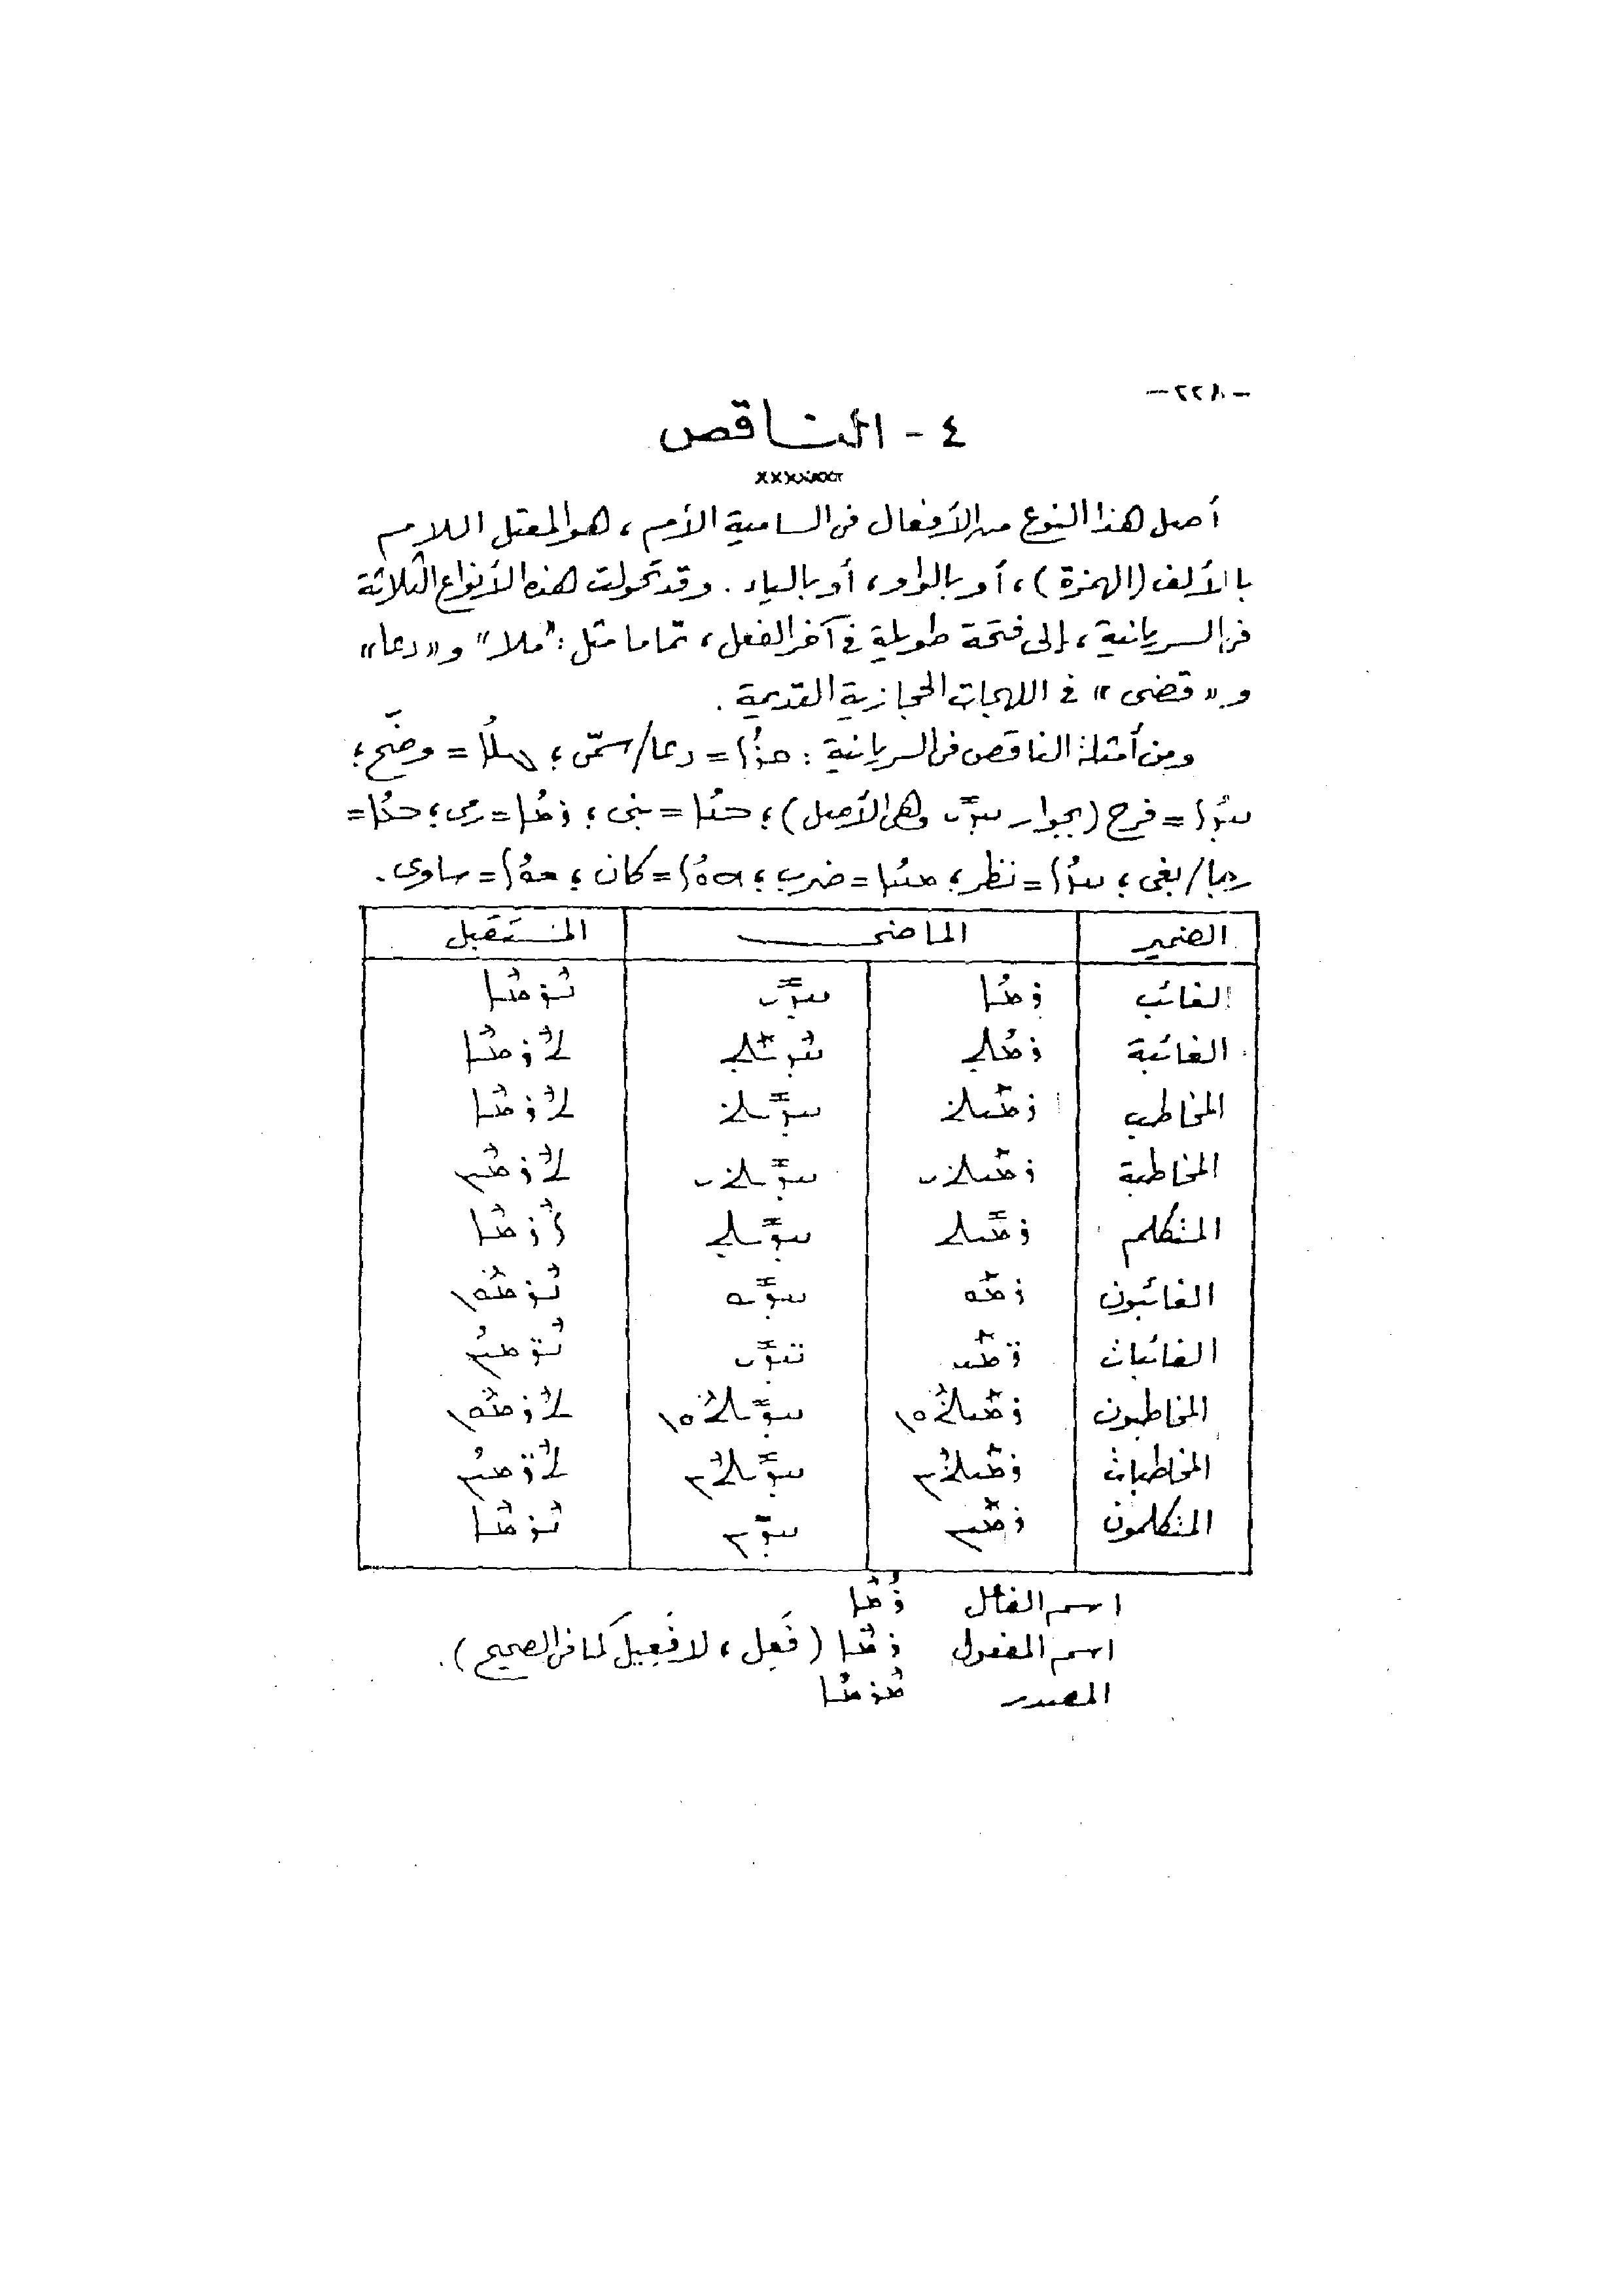 -٢٢٨-
٤ - الناقص
أصل هذا النوع من الأفعال فى السامية الأم ، هو المعتل اللام
بالألف (الهمزة) ، أو بالواو ، أو بالياء . وقد تحولت هذه الأنواع الثلاثة
فى السريانية ، إلى فتحة طويلة فى آخر الفعل ، تماما مثل : "ملا" و «دعا»
و «قضى» فى اللهجات الحجازية القديمة .
ومن أمثلة الناقص فى السريانية : ܩܪܳܐ = دعا/سمّى ؛ ܓܠܳܐ = وضَح ؛
ܚܕܳܐ = فرح (بجوار ܚܕܺܝ وهى الأصل) ؛ ܒܢܳܐ = بنى ؛ ܪܡܳܐ = رمى ؛ ܒܥܳܐ =
رجا/بغى ؛ ܚܙܳܐ = نظر ؛ ܡܚܳܐ = ضرب ؛ ܗܘܳܐ = كان ؛ ܫܘܳܐ = ساوى .
الضمير الماضى المستقبل
الغائب ܪܡܳܐ ܚܕܺܝ ܢܶܪܡܶܐ
الغائبة ܪܡܳܬ ܚܶܕܝܰܬ ܬܶܪܡܶܐ
المخاطب ܪܡܰܝܬ ܚܕܺܝܬ ܬܶܪܡܶܐ
المخاطبة ܪܡܰܝܬܝ ܚܕܺܝܬܝ ܬܶܪܡܶܝܢ
المتكلم ܪܡܺܝܬ ܚܕܺܝܬ ܐܶܪܡܶܐ
الغائبون ܪܡܰܘ ܚܕܺܝܘ ܢܶܪܡܽܘܢ
الغائبات ܪ̈ܡܰܝ ܚܕܺܝ̈ ܢܶܪ̈ܡܝܳܢ
المخاطبون ܪܡܰܝܬܽܘܢ ܚܕܺܝܬܽܘܢ ܬܶܪܡܽܘܢ
المخاطبات ܪܡܰܝܬܶܝܢ ܚܕܺܝܬܶܝܢ ܬܶܪ̈ܡܝܳܢ
المتكلمون ܪܡܰܝܢ ܚܕܺܝܢ ܢܶܪܡܶܐ
اسم الفاعل ܪܳܡܶܐ
اسم المفعول ܪܡܶܐ (فَعِل ، لا فَعِيل كما فى الصحيح) .
المصدر ܡܶܪܡܳܐ